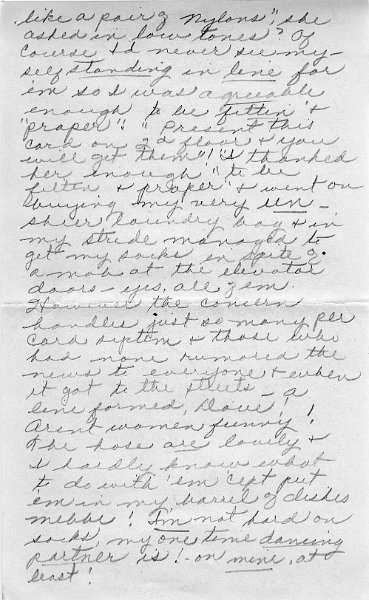 like a pair of Nylons", she
asked in low tones? Of
course I'd never see my-
self standing in line for
'em so I was agreeable
enough to be fittin' &
"proper". "Present this
card on 2nd floor & you
will get them"! I thanked
her enough "to be
fitten & proper" & went on
buying my very un-
sheer laundry bag & in
my stride managed to
get my socks in spite of
a mob at the elevator
doors - yes, all of em.
However the concern
handles just so many per
card system & those who
had none rumored the
news to everyone & when
it got to the streets - a
line formed, Dave!
Aren't women funny!
The hose are lovely &
I hardly know what
to do with 'em cept put
'em in my barrel of dishes
mebbe! I'm not hard on
socks, my one time dancing
partner is! - on mine, at
least!